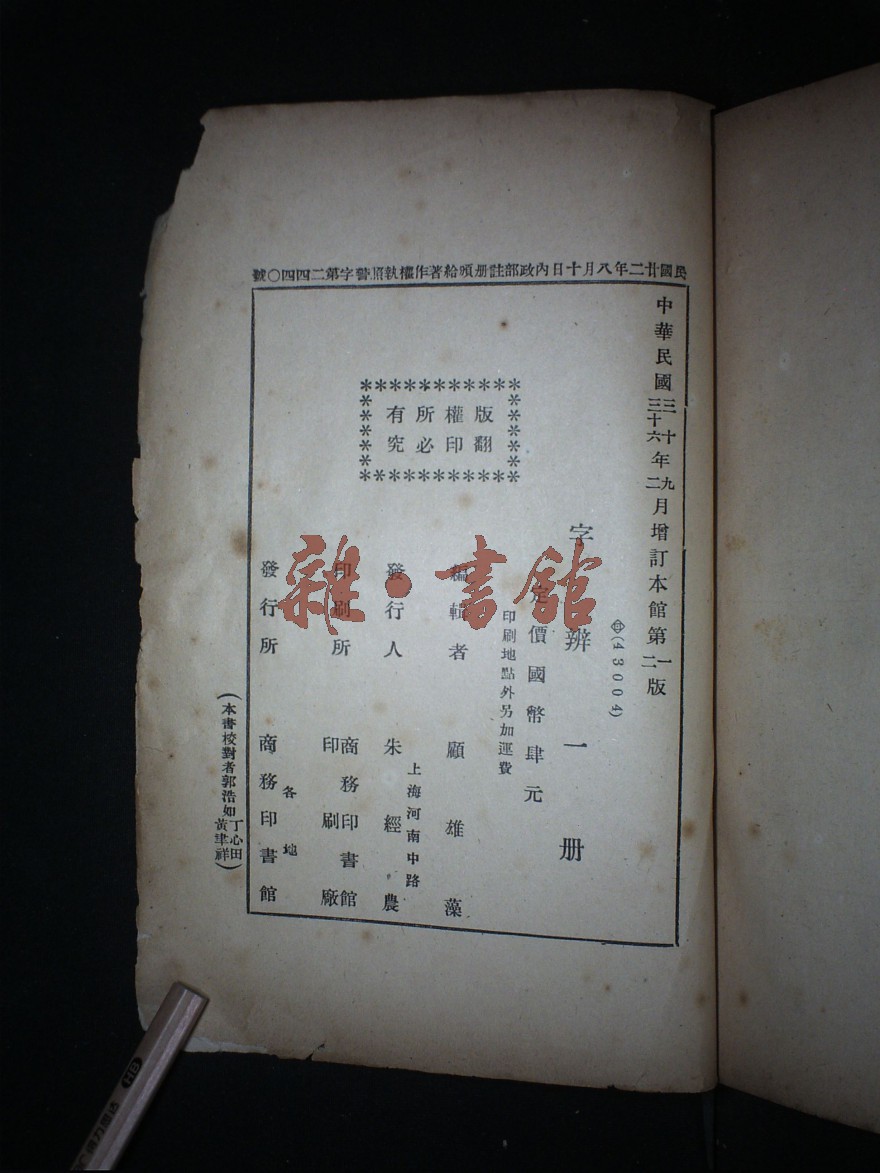 民國廿二年八月十日內政部註册頒給著作權執照警字第二四四○號
中華民國三十三十六年九二月增訂本館第一二版
(43004)
字辨一册
定價國幣肆元
印刷地點外另加運費
版權所有
翻印必究
編輯者 顧雄藻
上海河南中路
發行人 朱經農
印刷所 商務印書館
印刷廠
各地
發行所 商務印書館
(本書校對者郭浩如丁心田黃聿祥)
雜·書館
HB